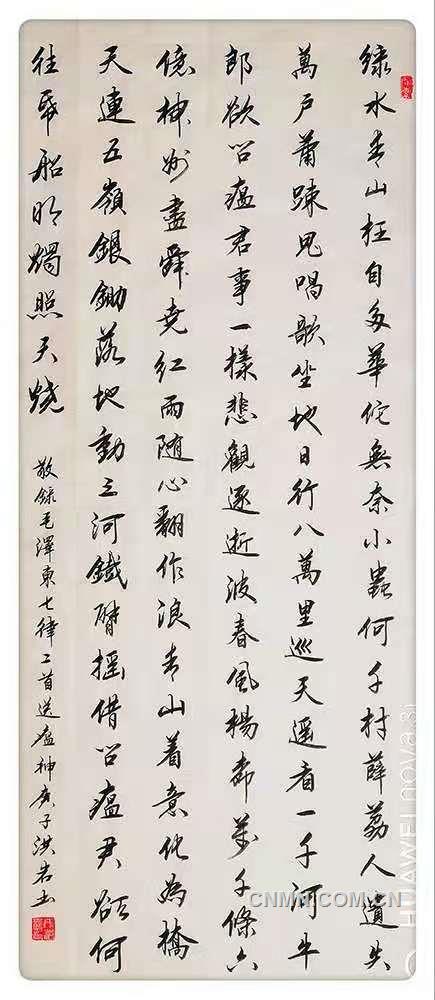 綠水青山枉自多華佗無奈小蟲何千村薜荔人遺失
萬戶蕭疎鬼唱歌坐地日行八萬里巡天遥看一千河牛
郎欲问瘟君事一樣悲觀逐逝波春風楊柳萬千條六
億神州盡舜堯紅雨随心翻作浪青山着意化為橋
天連五嶺銀鋤落地動三河鐵臂摇借问瘟君欲何
往紙船明燭照天燒
敬錄毛澤東七律二首送瘟神庚子洪岩书
CNMN.COM.CN
HUAWEI nova 3i